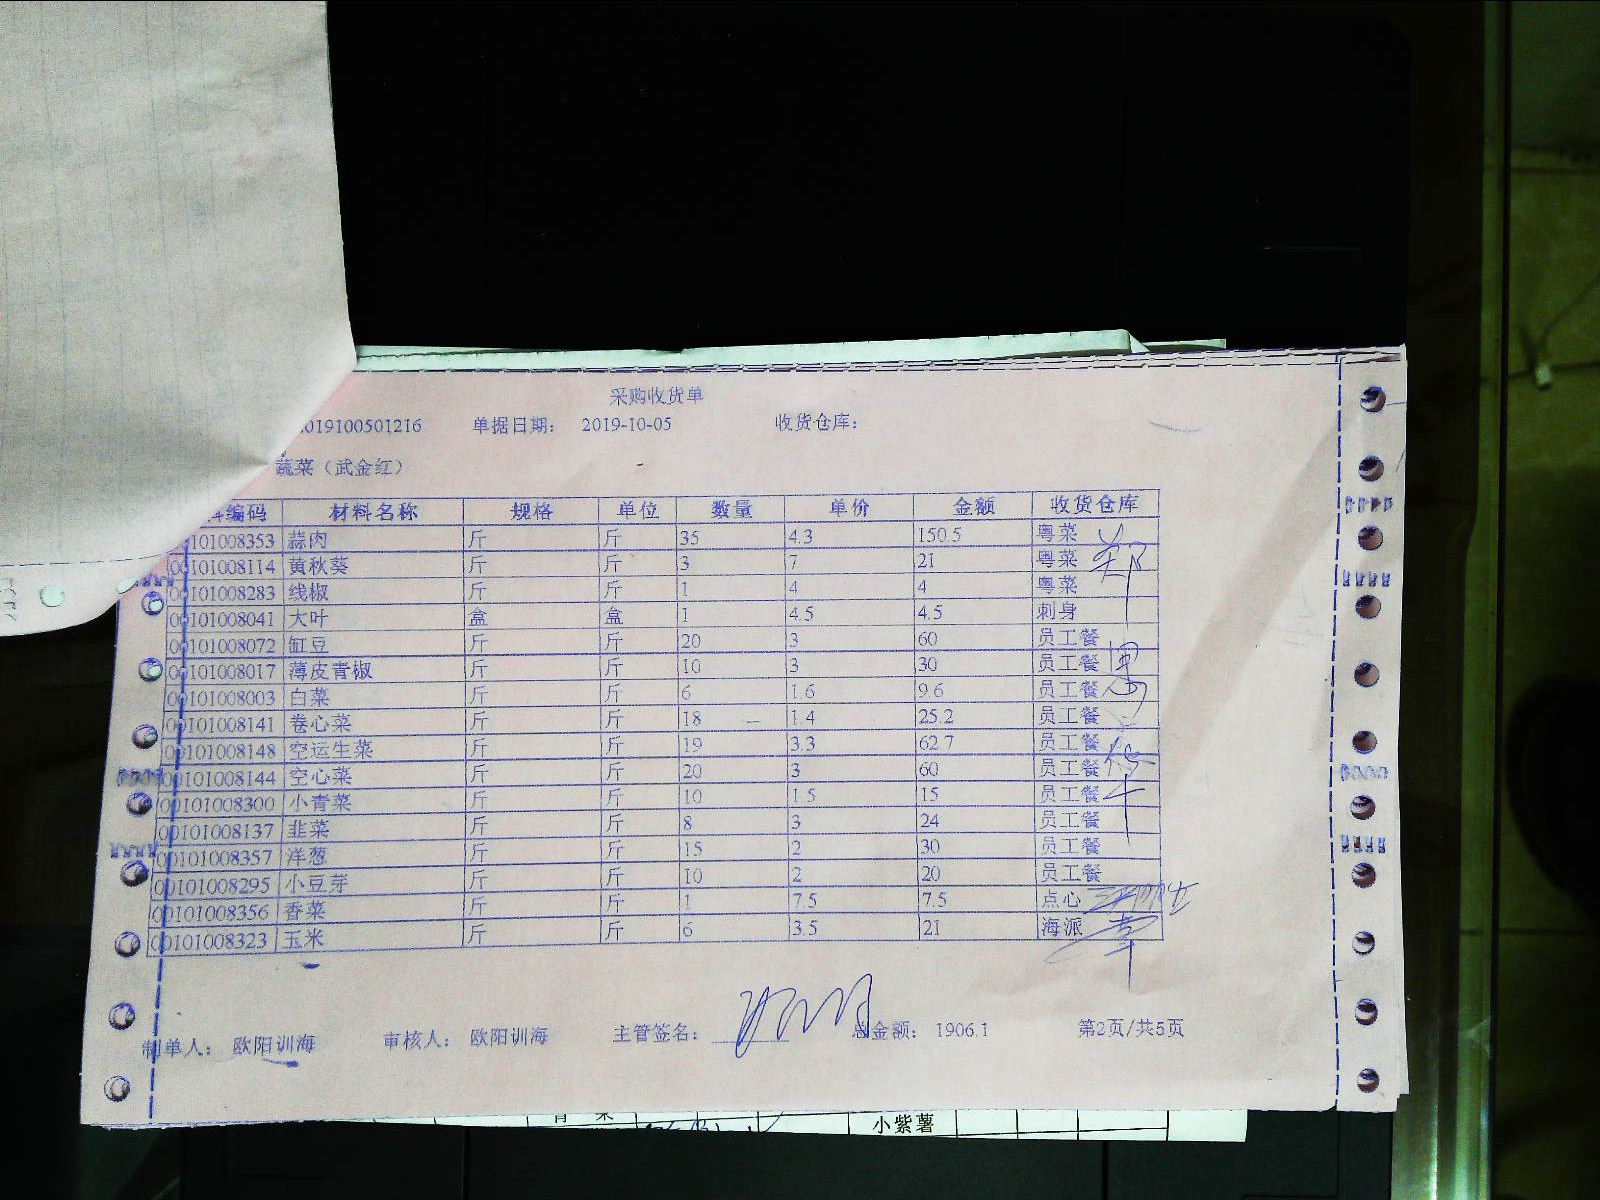 采购收货单
019100501216 单据日期： 2019-10-05 收货仓库：
蔬菜（武金红）
编码 材料名称 规格 单位 数量 单价 金额 收货仓库
101008353 蒜肉 斤 斤 35 4.3 150.5 粤菜
00101008114 黄秋葵 斤 斤 3 7 21 粤菜
00101008283 线椒 斤 斤 1 4 4 粤菜
00101008041 大叶 盒 盒 1 4.5 4.5 刺身
00101008072 缸豆 斤 斤 20 3 60 员工餐
00101008017 薄皮青椒 斤 斤 10 3 30 员工餐
00101008003 白菜 斤 斤 6 1.6 9.6 员工餐
00101008141 卷心菜 斤 斤 18 1.4 25.2 员工餐
00101008148 空运生菜 斤 斤 19 3.3 62.7 员工餐
00101008144 空心菜 斤 斤 20 3 60 员工餐
00101008300 小青菜 斤 斤 10 1.5 15 员工餐
00101008137 韭菜 斤 斤 8 3 24 员工餐
00101008357 洋葱 斤 斤 15 2 30 员工餐
00101008295 小豆芽 斤 斤 10 2 20 员工餐
00101008356 香菜 斤 斤 1 7.5 7.5 点心
00101008323 玉米 斤 斤 6 3.5 21 海派
制单人： 欧阳训海 审核人： 欧阳训海 主管签名： 总金额： 1906.1 第2页/共5页
小紫薯